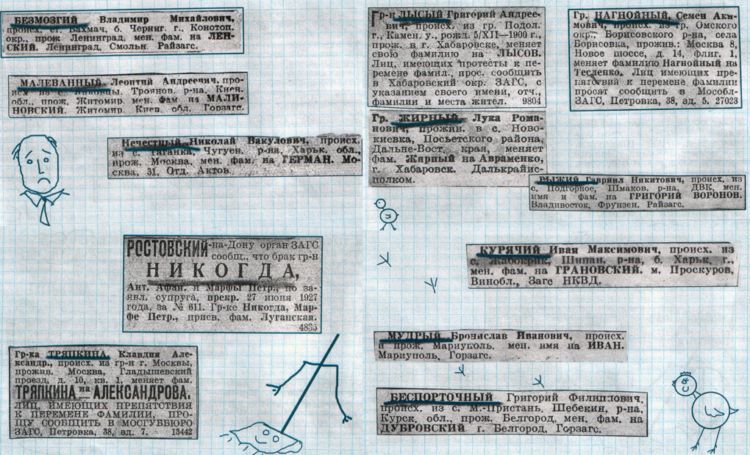 БЕЗМОЗГИЙ Владимир Михайлович,
происх. ст. Бахмач, б. Черниг. г., Конотоп.
окр., прож. Ленинград, мен. фам. на ЛЕН-
СКИЙ. Ленинград, Смольн. Райзагс.
МАЛЕВАННЫЙ Леонтий Андреевич, про-
Троянов. р-на, Киев.
обл., прож. Житомир, мен. фам. на МАЛИ-
НОВСКИЙ. Житомир, Киев. обл., Горзагс.
Нечестный Николай Вакулович, происх.
из с. Гатанка, Чугуев. р-на, Харьк. обл.,
прож. Москва, мен. фам. на ГЕРМАН. Мо-
сква, 31, Отд. Актов.
РОСТОВСКИЙ-на-Дону орган ЗАГС
сообщ., что брак гр-н
НИКОГДА,
Ант. Афан. и Марфы Петр., по за-
явл. супруга, прекр. 27 июня 1927
года, за № 611. Гр-ке Никогда, Мар-
фе Петр., присв. фам. Луганская.
4835
Гр-ка ТРЯПКИНА, Клавдия Але-
ксандр., происх. из гр-н г. Москвы,
прожив. Москва, Гладышевский
проезд, д. 10, кв. 1, меняет фам.
ТРЯПКИНА на АЛЕКСАНДРОВА.
ЛИЦ, ИМЕЮЩИХ ПРЕПЯТСТВИЯ
К ПЕРЕМЕНЕ ФАМИЛИИ, ПРО-
ШУ СООБЩИТЬ В МОСГУББЮРО
ЗАГС, Петровка, 38, зд. 7. 13442
Гр-н ЛЫСЫЙ Григорий Андрее-
вич, происх. из гр. Подол.
г., Камен. у., рожд. 5/XII—1900 г.,
прож. в г. Хабаровске, меняет
свою фамилию на ЛЫСОВ.
Лиц, имеющих протесты к пе-
ремене фамил., прос. сообщить
в Хабаровский окр. ЗАГС, с
указанием своего имени, отч.,
фамилии и места жител. 9804
Гр. ЖИРНЫЙ Лука Рома-
нович, прожив. в с. Ново-
киевка, Посьетского района,
Дальне-Вост. края, меняет
фам. Жирный на Авраменко,
г. Хабаровск. Далькрайис-
полком.
Гр. НАГНОЙНЫЙ, Семен Аки-
мович, происх. из гр. Омского
окр., Борисовского р-на, села
Борисовка, прожив.: Москва 8,
Новое шоссе, д. 14, флиг. 1,
меняет фамилию Нагнойный на
Тесленко. Лиц, имеющих пре-
пятствия к перемене фамилии
просят сообщить в Мособл-
ЗАГС, Петровка, 38, зд. 5. 27023
РЫЖИЙ Гавриил Никитович, происх. из
с. Подгорное, Шмаков. р-на, ДВК, мен.
имя и фам. на ГРИГОРИЙ ВОРОНОВ.
Владивосток, Фрунзен. Райзагс.
КУРЯЧИЙ Иван Максимович, происх. из
с. Жабокрик, Шпиан. р-на, б. Харьк. г.,
мен. фам. на ГРАНОВСКИЙ. м. Проскуров,
Винобл., Загс НКВД.
МУДРЫЙ Бронислав Иванович, происх.
и прож. Мариуполь, мен. имя на ИВАН.
Мариуполь, Горзагс.
БЕСПОРТОЧНЫЙ Григорий Филиппович,
происх. из с. М.-Пристань, Шебекин. р-на,
Курск. обл., прож. Белгород, мен. фам. на
ДУБРОВСКИЙ г. Белгород, Горзагс.